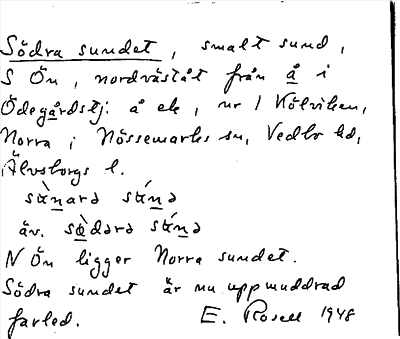 Södra sundet, smalt sund,
S Ön, nordväståt från å i
Ödegårdstj. å ek, nr 1 Kölviken,
Norra i Nössemarks sn, Vedbo hd,
Älvsborgs l.
sὰnarə sɶ́nə
äv. sὰdərə sɶ́nə
N Ön ligger Norra sundet.
Södra sundet är nu uppmuddrad
farled. E. Rosell 1948